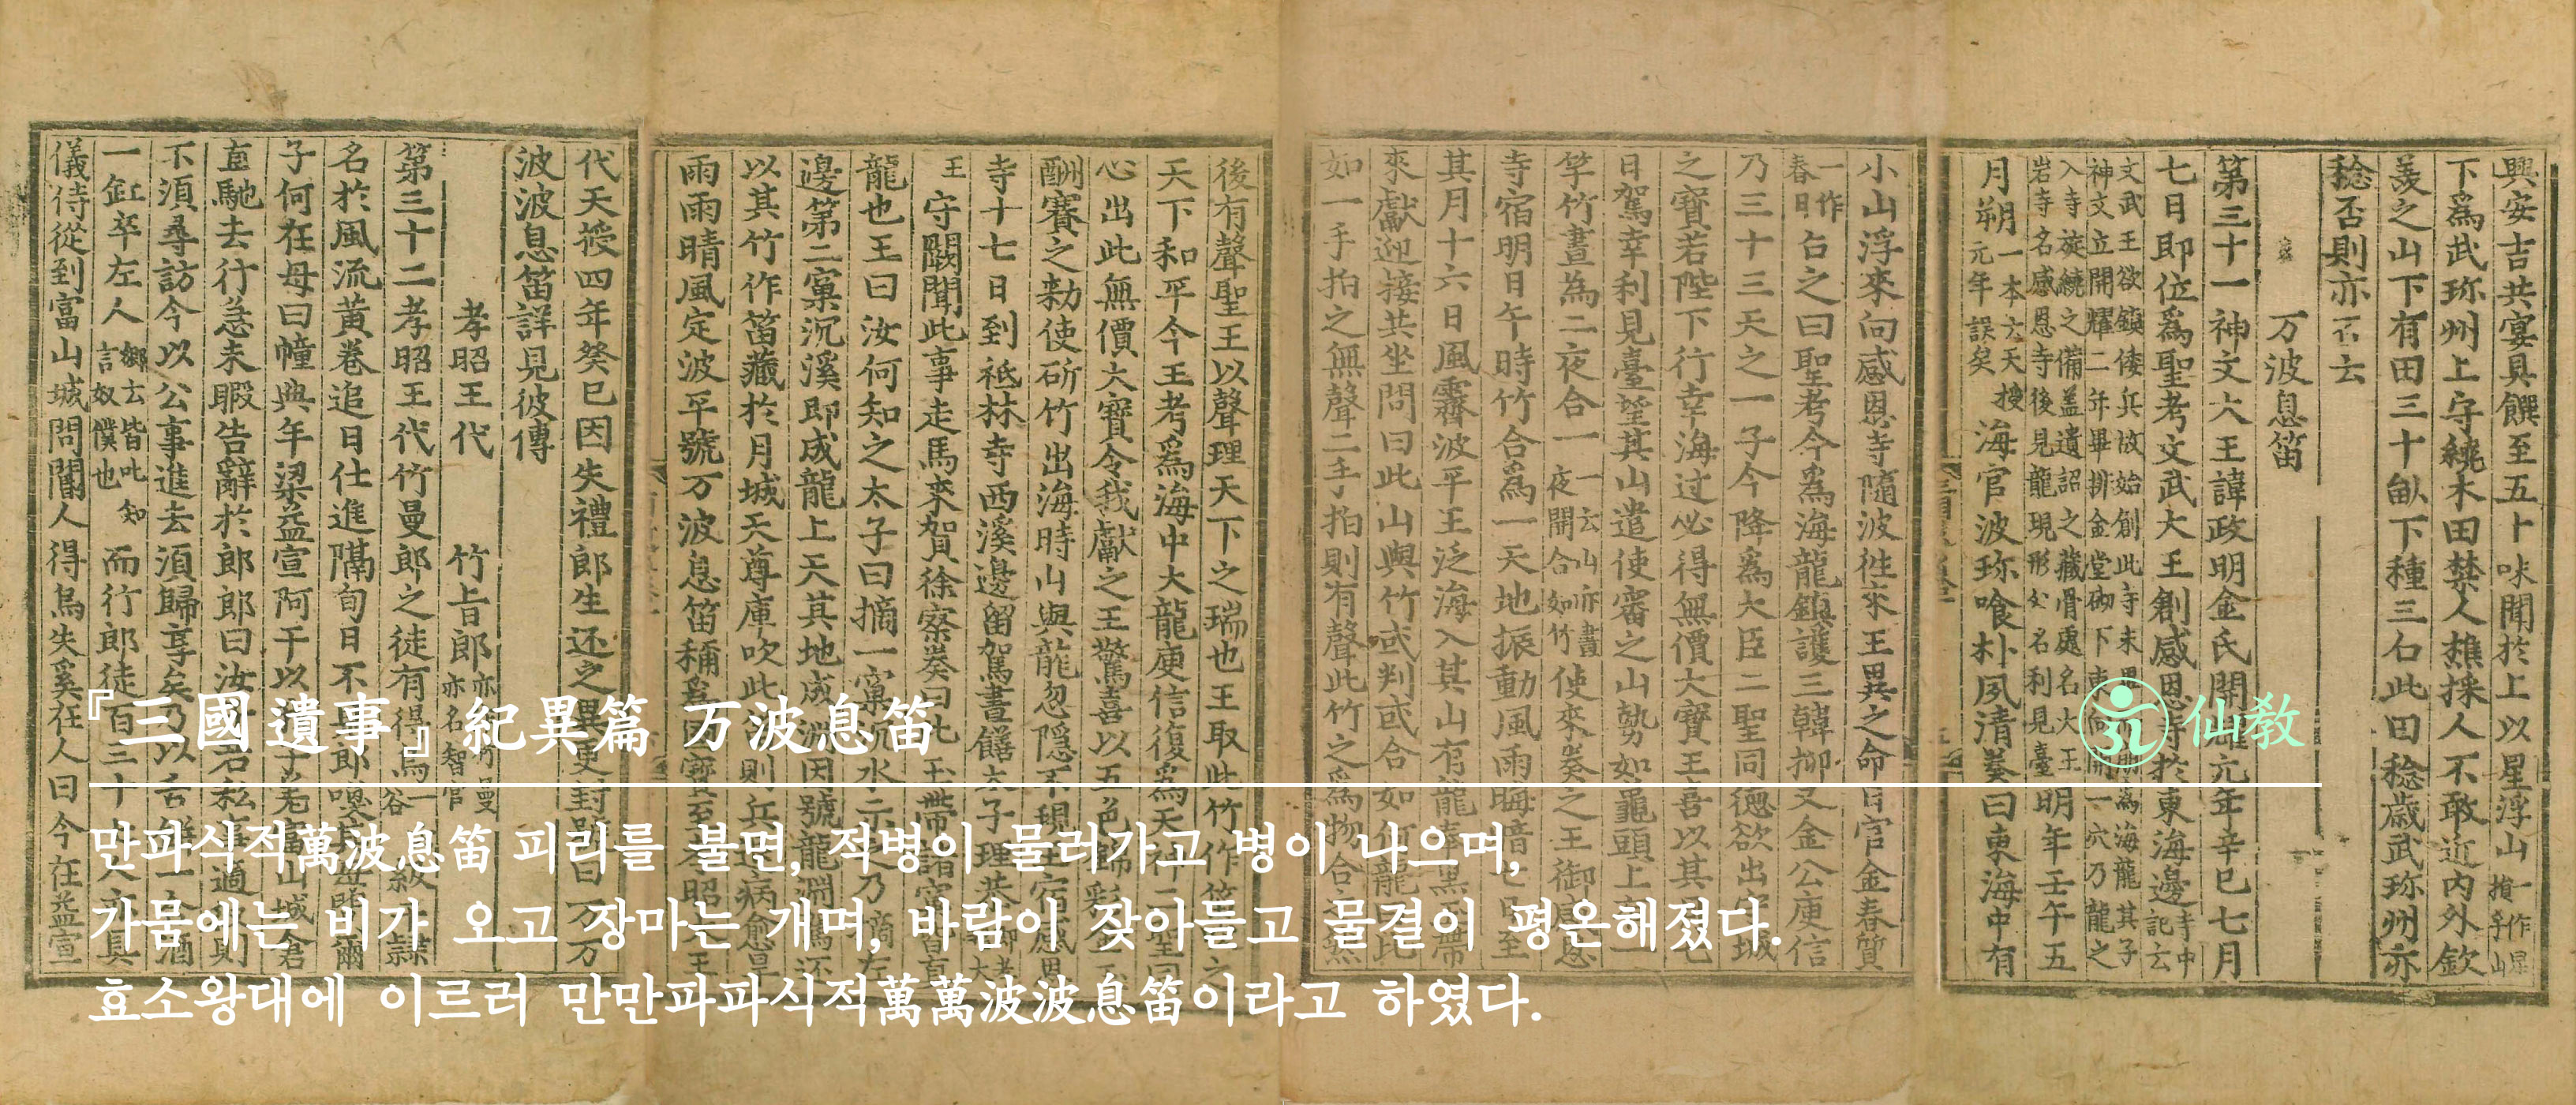 興安吉共宴具饌至五十味聞於上以星浮山一作星損乎山
下爲武珎州上守繞木田禁人樵採人不敢近內外欽
羨之山下有田三十畝下種三石此田稔歲武珎州亦
稔否則亦不云
万波息笛
第三十一神文大王諱政明金氏開耀元年辛巳七月
七日即位爲聖考文武大王創感恩寺於東海邊寺中記云
文武王欲鎮倭兵故始創此寺未畢而崩爲海龍其子
神文立開耀二年畢排金堂砌下東向開一穴乃龍之
入寺旋繞之備盖遺詔之藏骨處名大王
岩寺名感恩寺後見龍現形處名利見臺明年壬午五
月朔一本云天授元年誤矣海官波珎喰朴夙清奏曰東海中有
小山浮來向感恩寺隨波往來王異之命日官金春質
一作春日占之曰聖考今爲海龍鎮護三韓抑又金公庾信
乃三十三天之一子今降爲大臣二聖同德欲出守城
之寶若陛下行幸海过必得無價大寶王喜以其七
日駕幸利見臺望其山遣使審之山勢如龜頭上有一
竿竹晝爲二夜合一一云山亦晝夜開合如竹使來奏之王御感恩
寺宿明日午時竹合爲一天地振動風雨晦暗七日至
其月十六日風霽波平王泛海入其山有龍奉黑玉帶
來獻迎接共坐問曰此山與竹或判或合如何龍曰此
如一手拍之無聲二手拍則有聲此竹之爲物合之然
後有聲聖王以聲理天下之瑞也王取此竹作笛吹之
天下和平今王考爲海中大龍庾信復爲天神二聖同
心出此無價大寶令我獻之王驚喜以五色錦彩金玉
酬賽之勑使斫竹出海時山與龍忽隱不現王宿感恩
寺十七日到祗林寺西溪邊留駕晝饍太子理恭
王守闕聞此事走馬來賀徐察奏曰此玉帶諸窠皆真
龍也王曰汝何知之太子曰摘一窠沉水示之乃摘左
邊第二窠沉溪即成龍上天其地成淵因號龍淵駕还
以其竹作笛藏於月城天尊庫吹此笛則兵退病愈旱
雨雨晴風定波平號万波息笛稱爲國寶至孝昭大王
代天授四年癸巳因失禮郎生还之異更封號曰万万
波波息笛詳見彼傳
孝昭王代 竹旨郎亦作竹曼亦名智官
第三十二孝昭王代竹曼郎之徒有得烏一云谷級干隸
名於風流黃卷追日仕進隔旬日不見郎喚其母問爾
子何在母曰幢典牟梁益宣阿干以我子差富山城倉
直馳去行急未暇告辭於郎郎曰汝子若私事適彼則
不須尋訪今以公事進去須歸享矣乃以舌餅一合酒
一缸卒左人鄉云皆叱知言奴僕也而行郎徒百三十七人亦具
儀侍從到富山城問閽人得烏失奚在人曰今在益宣
仙敎
『三國遺事』紀異篇 万波息笛
만파식적萬波息笛 피리를 불면, 적병이 물러가고 병이 나으며,
가뭄에는 비가 오고 장마는 개며, 바람이 잦아들고 물결이 평온해졌다.
효소왕대에 이르러 만만파파식적萬萬波波息笛이라고 하였다.